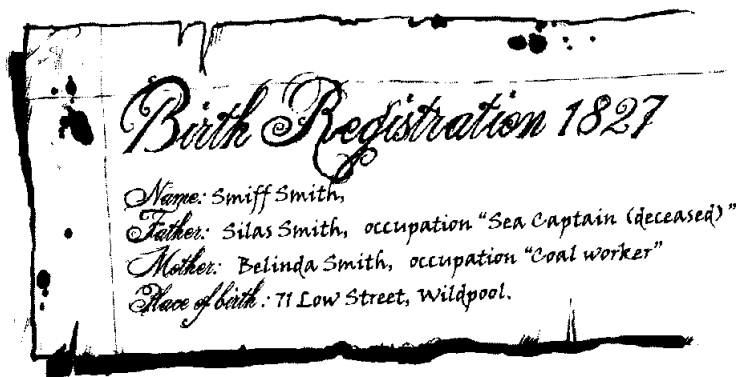 Birth Registration 1827
Name: Smiff Smith,
Father: Silas Smith, occupation “Sea Captain (deceased)”
Mother: Belinda Smith, occupation “Coal worker”
Place of birth: 71 Low Street, Wildpool.